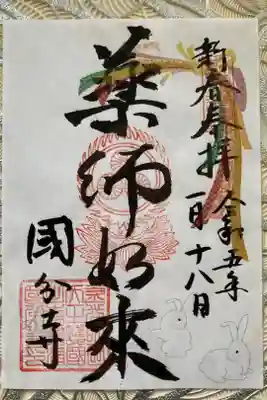 新春奉拝
令和五年
一月十八日
薬師如来
國分寺